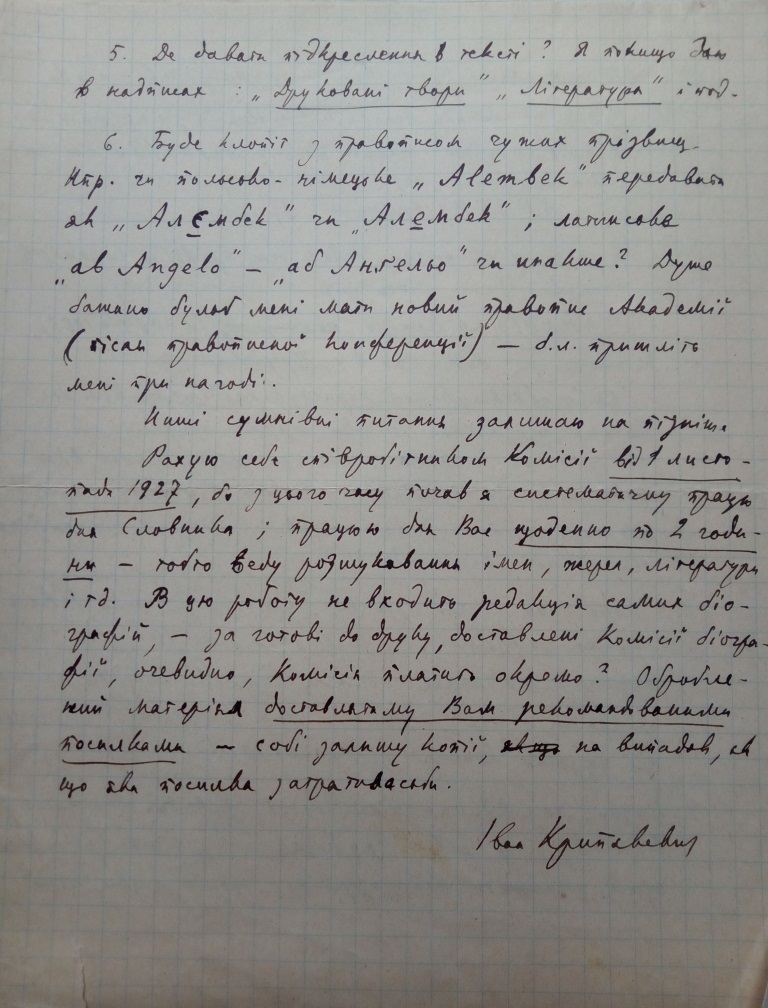 5. Де давати підкреслення в тексті? Я покищо даю
в надписах: „Друковані твори" „Література" і под.
6. Буде клопіт з правописом чужих прізвищ.
Нпр. чи польсько-німецьке „Alembek" передавати
як „Алємбек" чи „Алембек"; латинсове
„ab Angelo" – „аб Анґельо" чи инакше? Дуже
бажано булоб мені мати новий правопис Академії
(після правописної конференції) – б.л. пришліть
мені при нагоді.
Инші сумнівні питання залишаю на пізніше.
Рахую себе співробітником Комісії від 1 листо-
пада 1927, бо з цього часу почав я систематичну працю
для Словника; працюю для Вас щоденно по 2 годи-
ни – тобто веду розшукування імен, жерел, літератури
і тд. В цю роботу не входить редакція самих біо-
графій, – за готові до друку, доставлені Комісії біогра-
фії, очевидно, Комісія платить окремо? Оброблe-
ний матеріял доставлятиму Вам рекомандованими
посилками – собі залишу копії, якщо на випадок, як
що яка посилка затратиласяби.
Іван Крипякевич